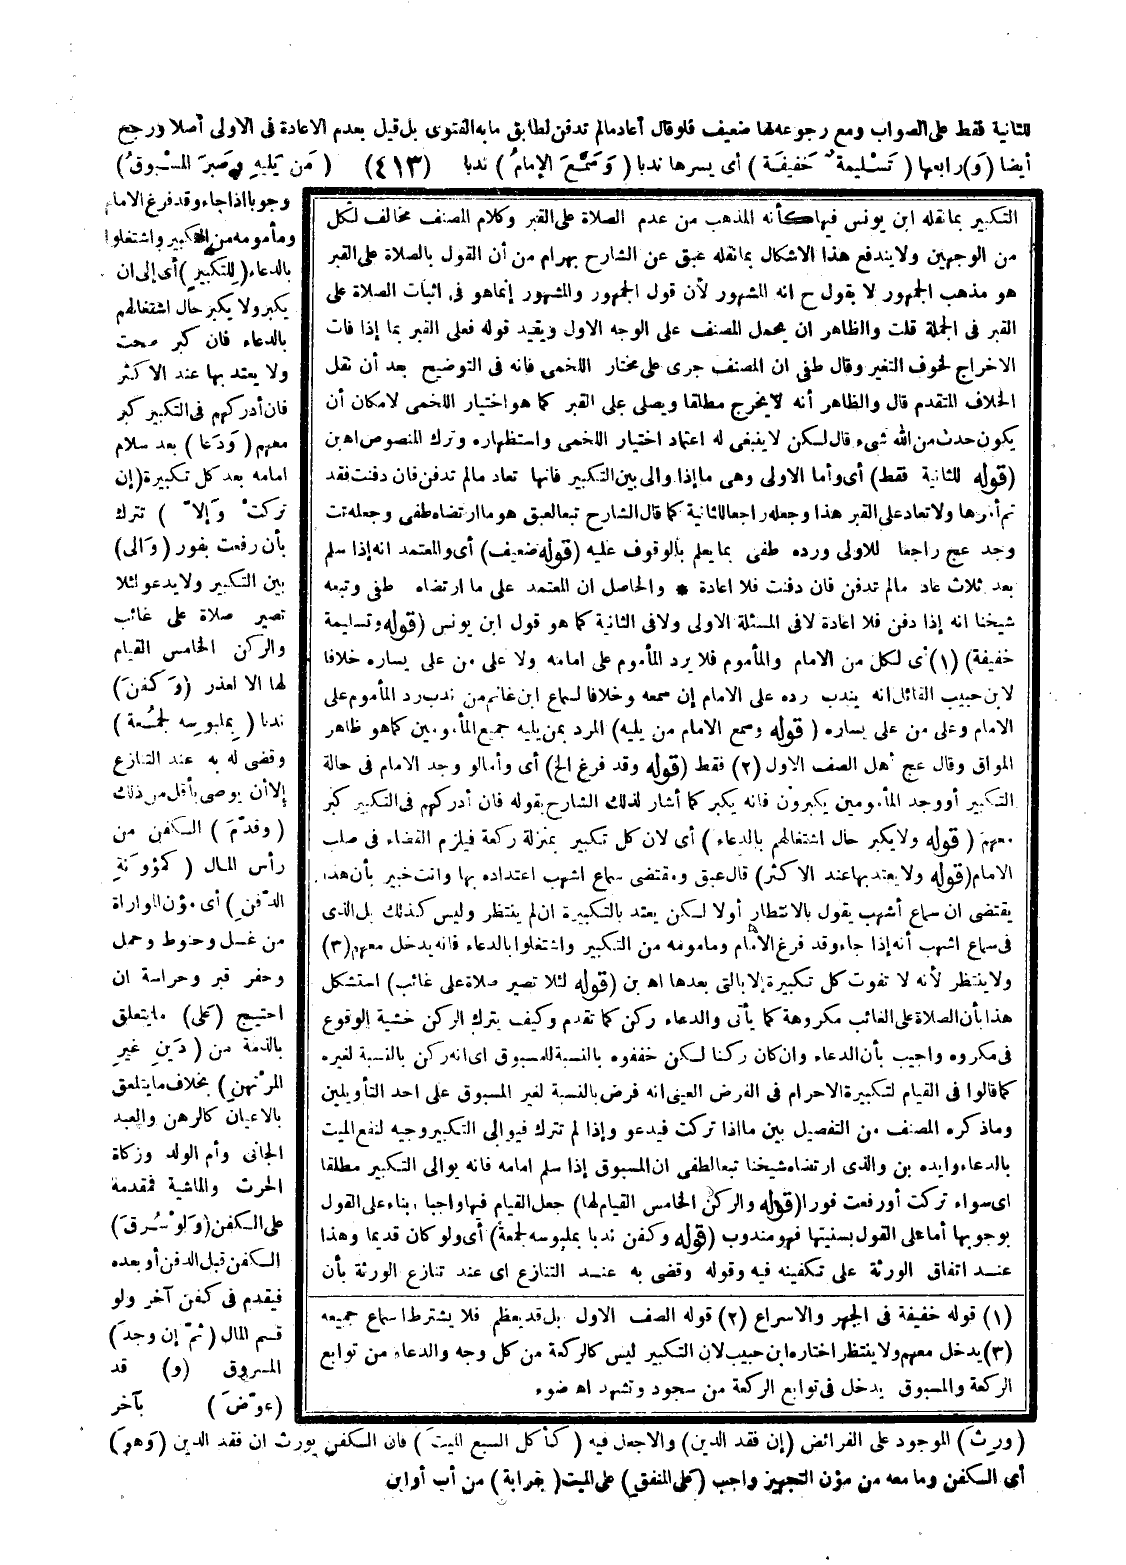 للثانية فقط على الصواب ومع رجوعه لها ضعيف فلو قال أعاد مالم تدفن لطابق ما به الفتوى بل قيل بعدم الاعادة فى الاولى أصلا ورجح
أيضا (وَ) رابعها (تَسْليمة خَفيفَة) أى يسرها ندبا (وَسَمَّعَ الإمامُ) ندبا (٤١٣) (مَن يَليهِ وصَبرَ المسْبوقُ)
وجوبا اذا جاء وقد فرغ الامام
ومأمومه من التكبير واشتغلوا
بالدعاء (للتكبيرِ) أى إلى ان
يكبر ولا يكبر حال اشتغالهم
بالدعاء فان كبر صحت
ولا يعتد بها عند الاكثر
فان أدركهم فى التكبير كبر
معهم (وَدَعا) بعد سلام
امامه بعد كل تكبيرة (إن
تركتْ وَإلاّ) تترك
بأن رفعت بفور (وَالى)
بين التكبير ولا يدعو لئلا
تصير صلاة على غائب
والركن الخامس القيام
لها الا لعذر (وَكفنَ)
ندبا (بملبوسه لجمُعة)
وقضى له به عند التنازع
إلا أن يوصى بأقل من ذلك
(وقدّمَ) الكفن من
رأس المال (كمؤونَةِ
الدّفنِ) أى مؤن المواراة
من غسل وحنوط وحمل
وحفر قبر وحراسة ان
احتيج (عَلى) ما يتعلق
بالذمة من (دَينِ غيرِ
المرْتهنِ) بخلاف ما يتعلق
بالاعيان كالرهن والعبد
الجانى وأم الولد وزكاة
الحرث والماشية فمقدمة
على الكفن (وَلوْ سُرقَ)
الكفن قبل الدفن أو بعده
فيقدم فى كفن آخر ولو
قسم المال (ثمّ إن وجدَ)
المسروق (و) قد
(عوّضَ) بآخر
التكبير بما نقله ابن يونس فيها كأنه المذهب من عدم الصلاة على القبر وكلام المصنف مخالف لكل
من الوجهين ولا يندفع هذا الاشكال بما نقله عبق عن الشارح بهرام من أن القول بالصلاة على القبر
هو مذهب الجمهور لا يقول ح انه المشهور لأن قول الجمهور والمشهور إنما هو فى اثبات الصلاة على
القبر فى الجملة قلت والظاهر ان يحمل المصنف على الوجه الاول ويقيد قوله فعلى القبر بما إذا فات
الاخراج لخوف التغير وقال طفى ان المصنف جرى على مختار اللخمى فانه فى التوضيح بعد أن نقل
الخلاف المتقدم قال والظاهر أنه لا يخرج مطلقا ويصلى على القبر كما هو اختيار اللخمى لامكان أن
يكون حدث من الله شىء قال لكن لا ينبغى له اعتماد اختيار اللخمى واستظهاره وترك المنصوص اه بن
(قوله للثانية فقط) أى وأما الاولى وهى ما إذا والى بين التكبير فانها تعاد مالم تدفن فان دفنت فقد
تم أمرها ولا تعاد على القبر هذا وجعله راجعا للثانية كما قال الشارح تبعا لعبق هو ما ارتضاه طفى وجعله تت
وجد عج راجعا للاولى ورده طفى بما يعلم بالوقوف عليه (قوله ضعيف) أى والمعتمد انه إذا سلم
بعد ثلاث عاد مالم تدفن فان دفنت فلا اعادة * والحاصل ان المعتمد على ما ارتضاه طفى وتبعه
شيخنا انه إذا دفن فلا اعادة لا فى المسئلة الاولى ولا فى الثانية كما هو قول ابن يونس (قوله وتسليمة
خفيفة) (١) أى لكل من الامام والمأموم فلا يرد المأموم على امامه ولا على من على يساره خلافا
لابن حبيب القائل انه يندب رده على الامام إن سمعه وخلافا لسماع ابن غانم من ندب رد المأموم على
الامام وعلى من على يساره (قوله وسمع الامام من يليه) المرد بمن يليه جميع المأمومين كما هو ظاهر
المواق وقال عج أهل الصف الاول (٢) فقط (قوله وقد فرغ الخ) أى وأما لو وجد الامام فى حالة
التكبير أو وجد المأمومين يكبرون فانه يكبر كما أشار لذلك الشارح بقوله فان أدركهم فى التكبير كبر
معهم (قوله ولا يكبر حال اشتغالهم بالدعاء) أى لان كل تكبير بمنزلة ركعة فيلزم القضاء فى صلب
الامام (قوله ولا يعتد بها عند الاكثر) قال عبق ومقتضى سماع اشهب اعتداده بها وانت خبير بأن هذا
يقتضى ان سماع أشهب يقول بالانتظار أولا لكن يعتد بالتكبيرة ان لم ينتظر وليس كذلك بل الذى
فى سماع اشهب أنه إذا جاء وقد فرغ الامام ومأمومه من التكبير واشتغلوا بالدعاء فانه يدخل معهم (٣)
ولا ينتظر لأنه لا تفوت كل تكبيرة إلا بالتى بعدها اه بن (قوله لئلا تصير صلاة على غائب) استشكل
هذا بأن الصلاة على الغائب مكروهة كما يأتى والدعاء ركن كما تقدم وكيف يترك الركن خشية الوقوع
فى مكروه واجيب بأن الدعاء وان كان ركنا لكن خففوه بالنسبة للمسبوق اى انه ركن بالنسبة لغيره
كما قالوا فى القيام لتكبيرة الاحرام فى الفرض العينى انه فرض بالنسبة لغير المسبوق على احد التأويلين
وما ذكره المصنف من التفصيل بين ما اذا تركت فيدعو وإذا لم تترك فيوالى التكبير وجيه لنفع الميت
بالدعاء وايده بن والذى ارتضاه شيخنا تبعا لطفى ان المسبوق إذا سلم امامه فانه يوالى التكبير مطلقا
اى سواء تركت أو رفعت فورا (قوله والركن الخامس القيام لها) جعل القيام فيها واجبا بناء على القول
بوجوبها أما على القول بسنيتها فهو مندوب (قوله وكفن ندبا بملبوسه لجمعة) أى ولو كان قديما وهذا
عند اتفاق الورثة على تكفينه فيه وقوله وقضى به عند التنازع اى عند تنازع الورثة بأن
(١) قوله خفيفة فى الجهر والاسراع (٢) قوله الصف الاول بل قد يعظم فلا يشترط اسماع جميعه
(٣) يدخل معهم ولا ينتظر اختاره ابن حبيب لان التكبير ليس كالركعة من كل وجه والدعاء من توابع
الركعة والمسبوق يدخل فى توابع الركعة من سجود وتشهد اه ضوء
(ورثَ) الموجود على الفرائض (إن فقد الدين) والا جعل فيه (كأكل السبع الميتَ) فان الكفن يورث ان فقد الدين (وَهوَ)
أى الكفن وما معه من مؤن التجهيز واجب (عَلى المنفقِ) على الميت (بقرابة) من أب أو ابن